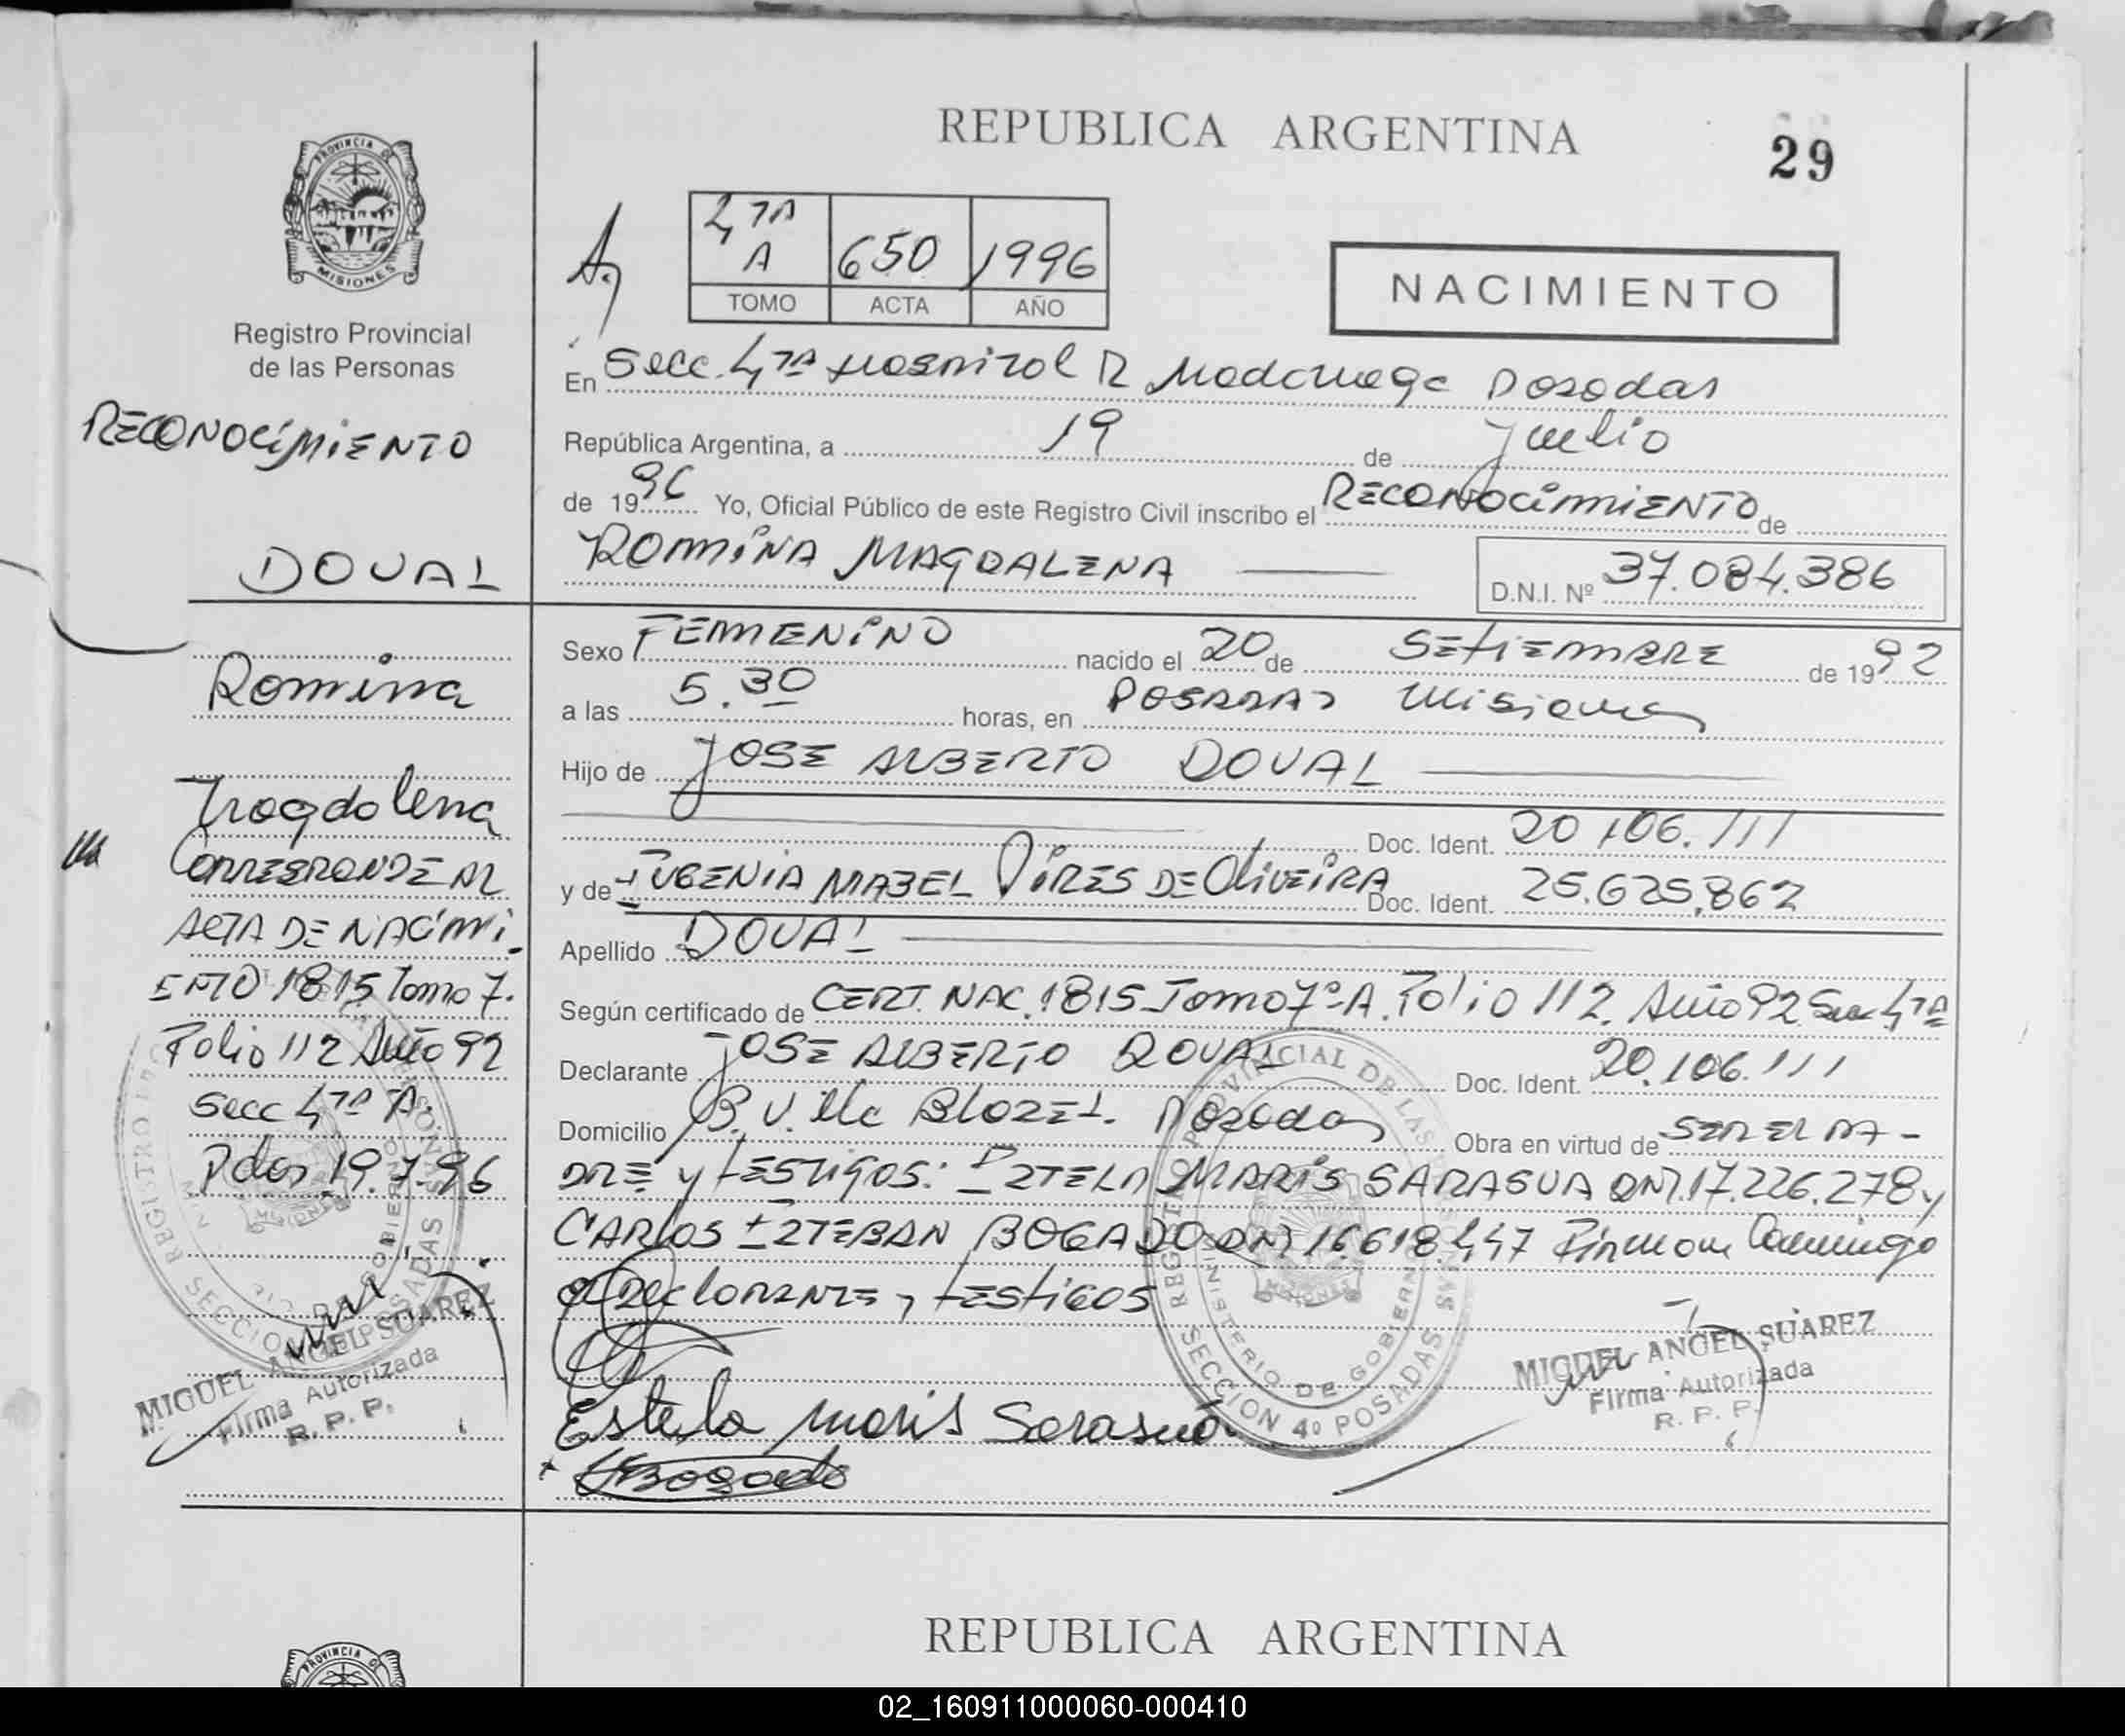 REPUBLICA ARGENTINA
29
PROVINCIA DE
MISIONES
Registro Provincial
de las Personas
4TA
A 650 1996
TOMO ACTA AÑO
NACIMIENTO
En Secc. 4TA Hospital R Madariaga Posadas
República Argentina, a 19 de Julio
de 1996 Yo, Oficial Público de este Registro Civil inscribo el RECONOCIMIENTO de
ROMINA MAGDALENA
D.N.I. Nº 37.084.386
Sexo FEMENINO nacido el 20 de SETIEMBRE de 1992
a las 5.30 horas, en POSADAS Misiones
Hijo de JOSE ALBERTO DOVAL
Doc. Ident. 20.106.111
y de EUGENIA MABEL PIRES DE OLIVEIRA Doc. Ident. 25.625.862
Apellido DOVAL
Según certificado de CERT. NAC. 1815 Tomo 7º A. Folio 112. Año 92 Secc 4TA
Declarante JOSE ALBERTO DOVAL Doc. Ident. 20.106.111
Domicilio B. V. Posadas Obra en virtud de SER EL PA-
DRE y TESTIGOS: ESTELA MARIS SARASUA DNI 17.226.278 y
CARLOS ESTEBAN BOGADO DNI 16.618.447 Firman Conmigo
DeclaRANTE y TESTIGOS
Estela Maris Sarasuá
Bogado
MIGUEL ANGEL SUAREZ
Firma Autorizada
R. P. P.
REGISTRO PROVINCIAL DE LAS PERSONAS
MINISTERIO DE GOBIERNO
SECCION 4º POSADAS
RECONOCIMIENTO
DOVAL
Romina
Magdalena
CORRESPONDE AL
ACTA DE NACIMI.
ENTO 1815 Tomo 7.
Folio 112 Año 92
Secc 4TA A.
Pdas 19.7.96
MIGUEL ANGEL SUAREZ
Firma Autorizada
R. P. P.
REPUBLICA ARGENTINA
PROVINCIA DE
02_160911000060-000410